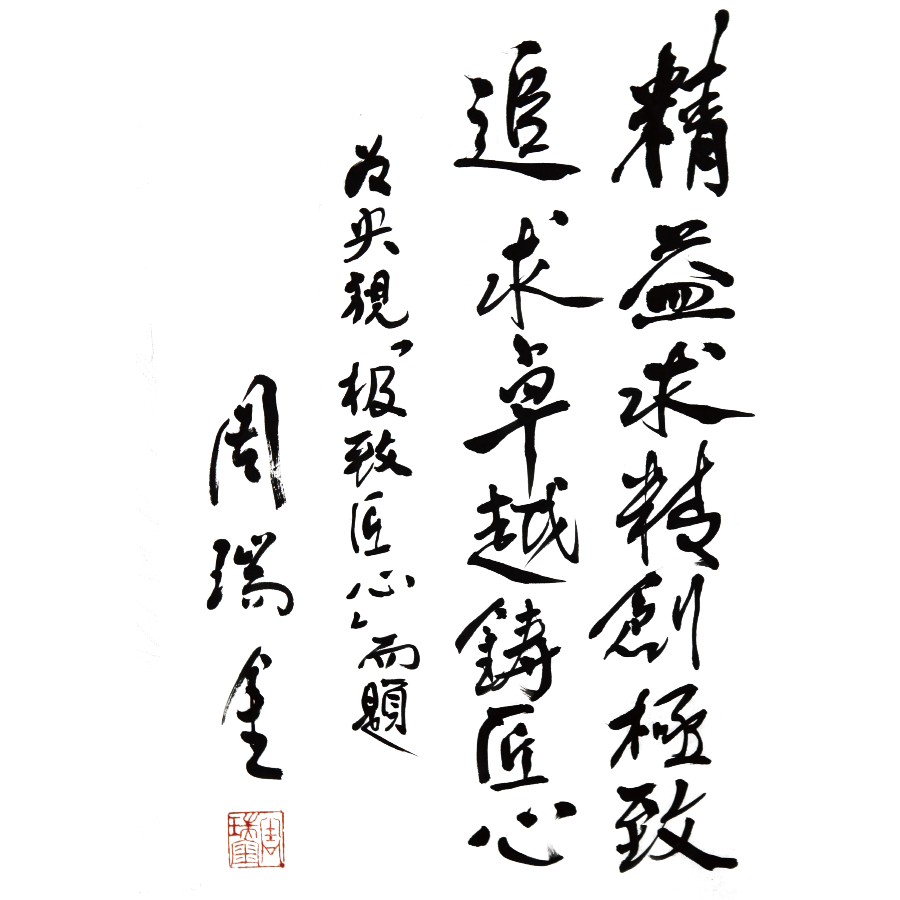 精益求精創極致
追求卓越鑄匠心
为央視「极致匠心」而題
周瑞金
周瑞金